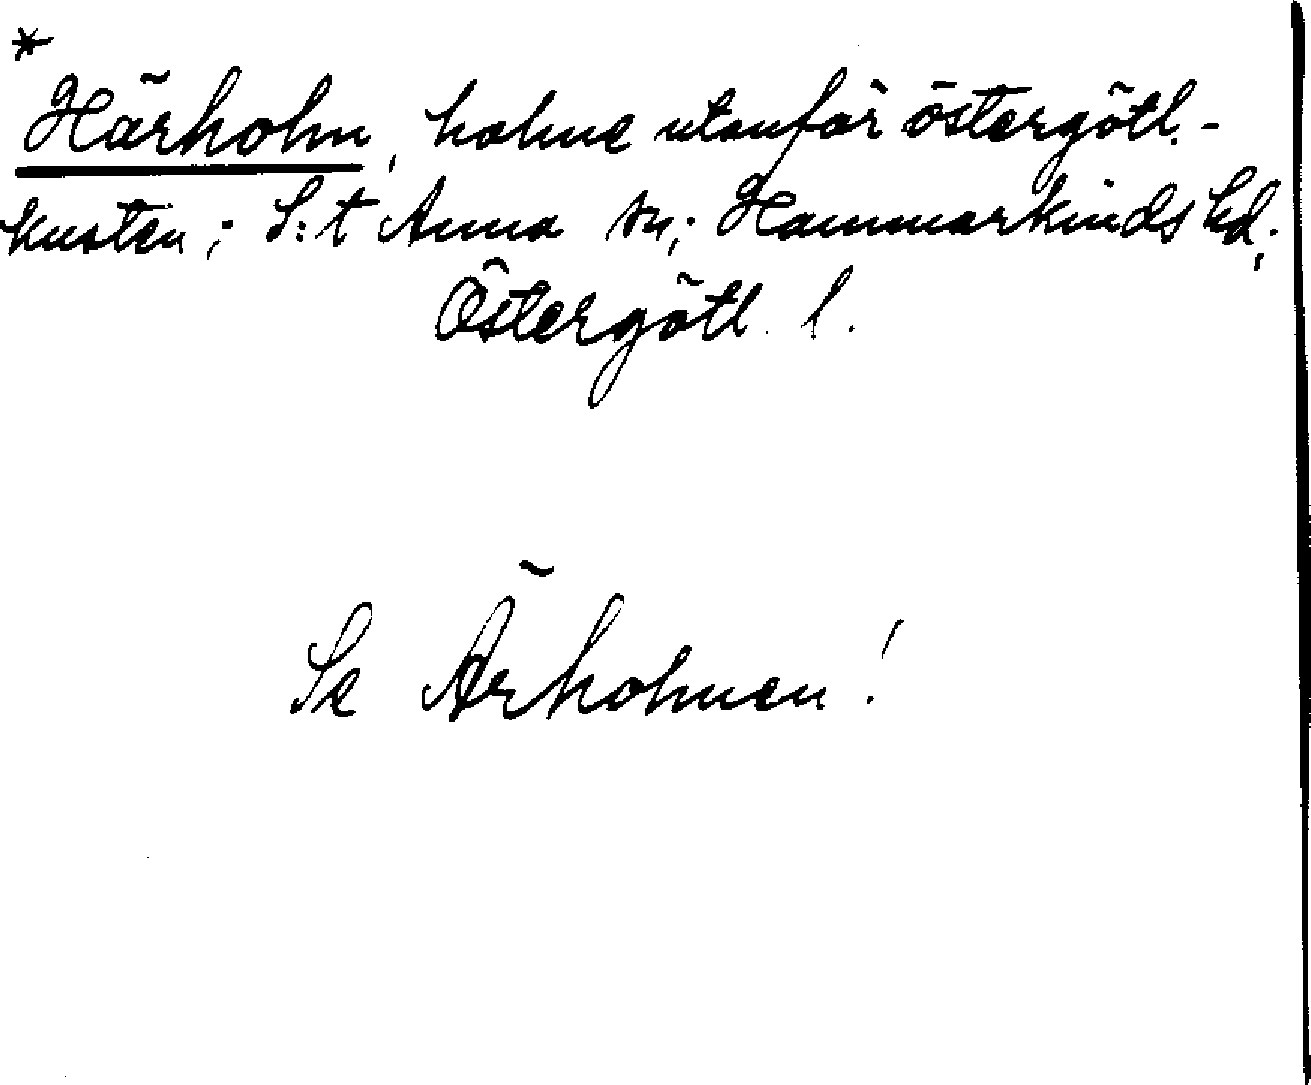 *
Härholm, holme utanför östergötl.-
kusten; S:t Anna sn; Hammarkinds hd;
Östergötl. l.
Se Ärholmen!